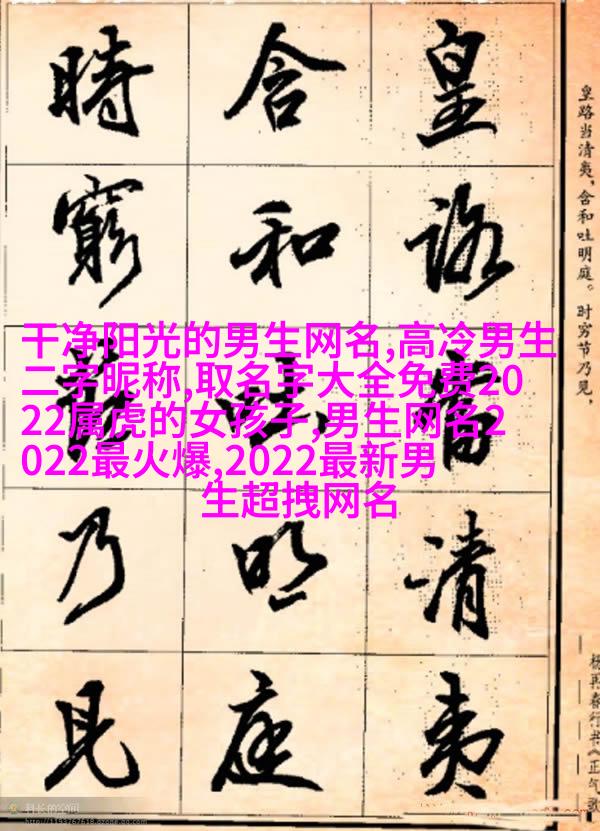 皇路当清夷，含和吐明庭。时穷节乃见，
杨再春行书《正气歌
皇路當清夷
含和吐明庭
時窮節乃見
干净阳光的男生网名,高冷男生
二字昵称,取名字大全免费20
22属虎的女孩子,男生网名2
022最火爆,2022最新男
生超拽网名
科长的空间